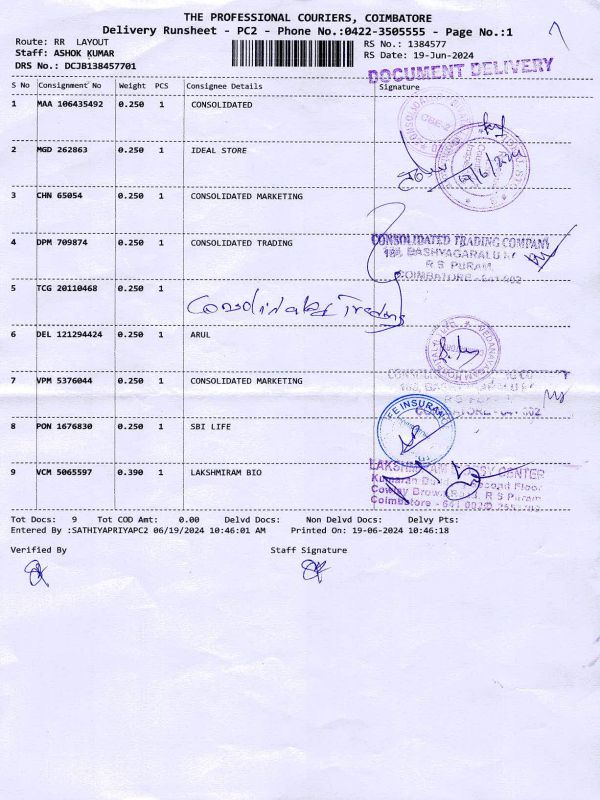 THE PROFESSIONAL COURIERS, COIMBATORE
Delivery Runsheet - PC2 - Phone No.:0422-3505555 - Page No.:1
Route: RR LAYOUT RS No.: 1384577
Staff: ASHOK KUMAR RS Date: 19-Jun-2024
DRS No.: DCJB138457701
DOCUMENT DELIVERY
S No Consignment No Weight PCS Consignee Details Signature
1 MAA 106435492 0.250 1 CONSOLIDATED
2 MGD 262863 0.250 1 IDEAL STORE
3 CHN 65054 0.250 1 CONSOLIDATED MARKETING
4 DPM 709874 0.250 1 CONSOLIDATED TRADING
CONSOLIDATED TRADING COMPANY
R S PURAM,
COIMBATORE - 641 002
5 TCG 20110468 0.250 1
Consolidated Trading
6 DEL 121294424 0.250 1 ARUL
7 VPM 5376044 0.250 1 CONSOLIDATED MARKETING
8 PON 1676830 0.250 1 SBI LIFE
LIFE INSURANCE
9 VCM 5065597 0.390 1 LAKSHMIRAM BIO
Coimbatore - 641 002
Tot Docs: 9 Tot COD Amt: 0.00 Delvd Docs: Non Delvd Docs: Delvy Pts:
Entered By :SATHIYAPRIYAPC2 06/19/2024 10:46:01 AM Printed On: 19-06-2024 10:46:18
Verified By Staff Signature